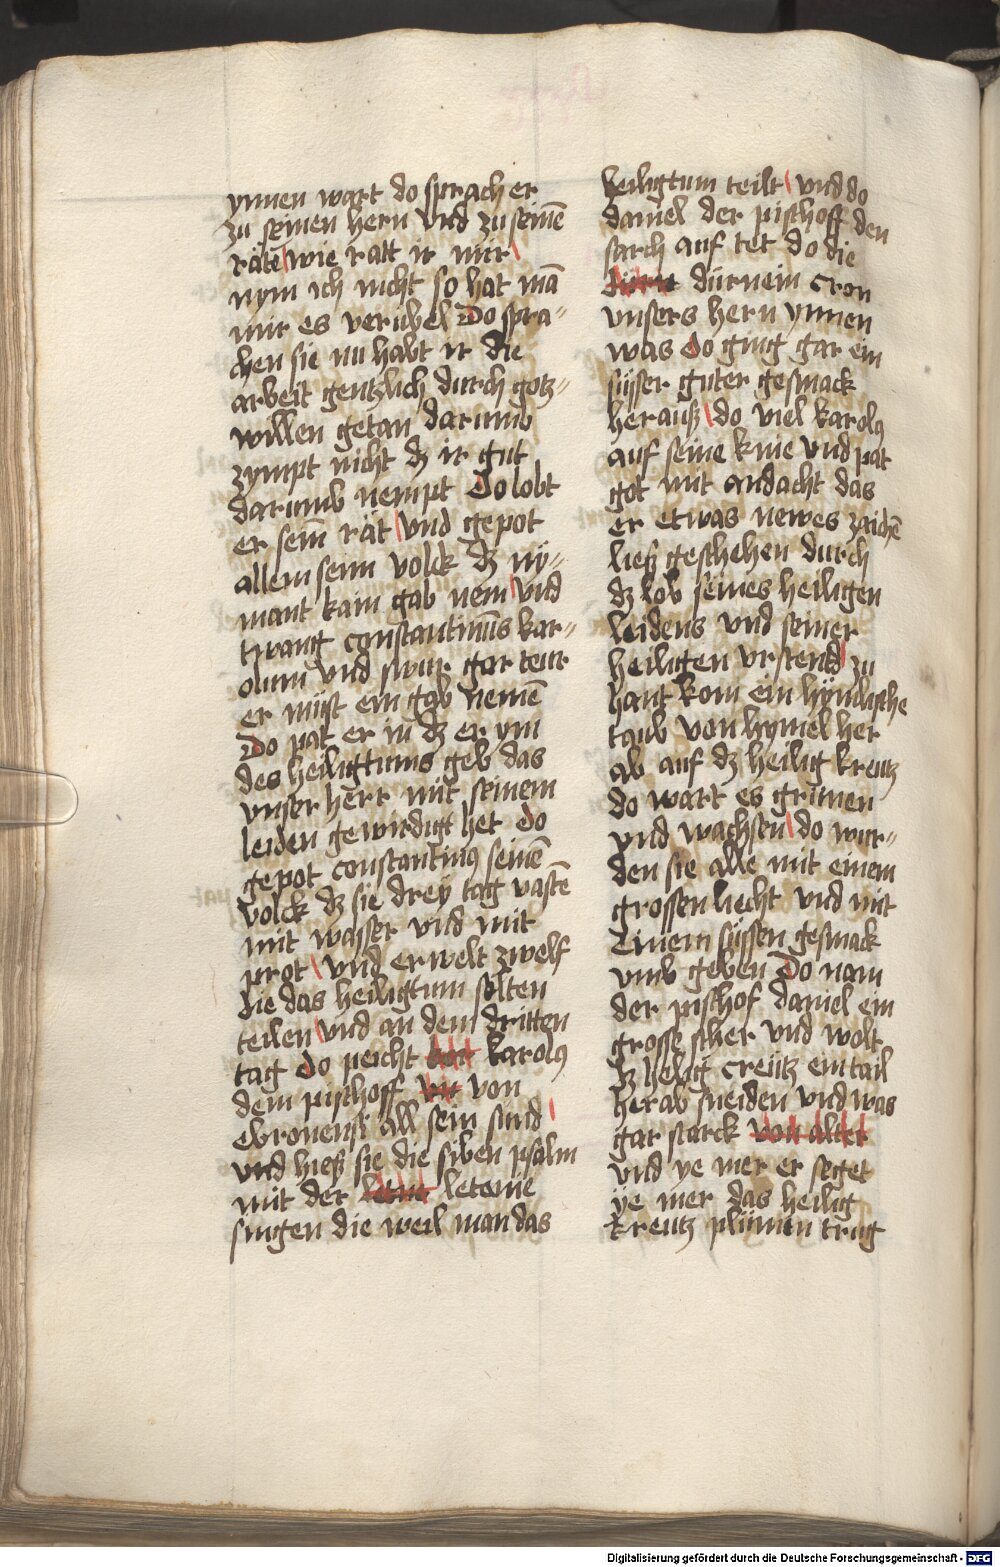 ynnen wart do sprach er
zu seinen hern vnd zu seinē
räte wie ratt ir mir
nym ich nicht so hat mā
mir es verübel Do spra-
chen sie nu habt ir die
arbeit gentzlich durch gotz-
willen getan darumb
zympt nicht dz ir gut
darumb nempt Do lobt
er sein rät vnd gepot
allem seim volck dz ny-
mant kain gab nem vnd
twang constantinus kar-
olum vnd swur gar teur
er müst ein gab nemē
Do pat er in dz er ym
des heiligtums geb das
vnser herr mit seinem
leiden gewirdigt het Do
gepot constantinus seinē
volck dz sie drey tag vastē
mit wasser vnd mit
prot vnd erwelt zwelf
die das heiligtum solten
teilen vnd an dem dritten
tag Do peicht karolus
dem pischoff von
ebronenst all sein sund
vnd hieß sie die siben psalm
mit der letanie
singen die weil man das
heiligtum teilt vnd do
daniel der pischoff den
sarch auf tet do die
dürnein cron
vnsers hern ynnen
was do ging gar ein
süsser guter gesmack
herauß do viel karolus
auf seine knie vnd pat
got mit andacht das
er etwas newes zaichē
ließ geschehen durch
dz lob seines heiligen
leidens vnd seiner
heiligen vrstend zu
hant kom ein hymlische
taub von hymel her
ab auf dz heilig kreutz
do wart es grunen
vnd wachsen do wur-
den sie alle mit einem
grossen liecht vnd mit
Einem süssen gesmack
vmb geben Do nam
der pischof daniel ein
grosse scher vnd wolt
dz helig creütz ein tail
herab sneiden vnd was
gar starck von alter
vnd ye mer er seget
ye mer das heilig
kreutz plümen trug
Digitalisierung gefördert durch die Deutsche Forschungsgemeinschaft - DFG